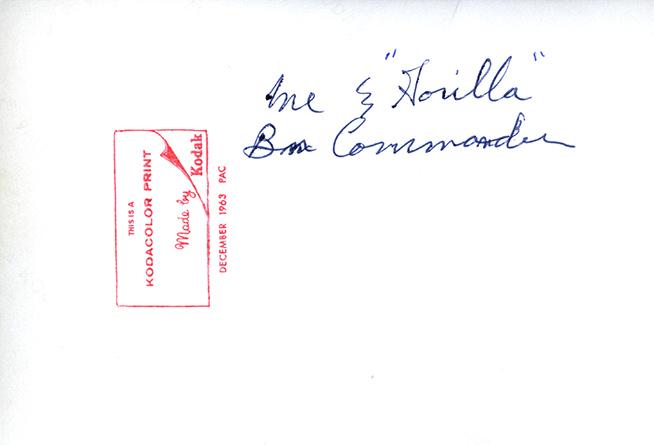 me & "Gorilla"
Bn Commander
THIS IS A
KODACOLOR PRINT
Made by
Kodak
DECEMBER 1963 PAC